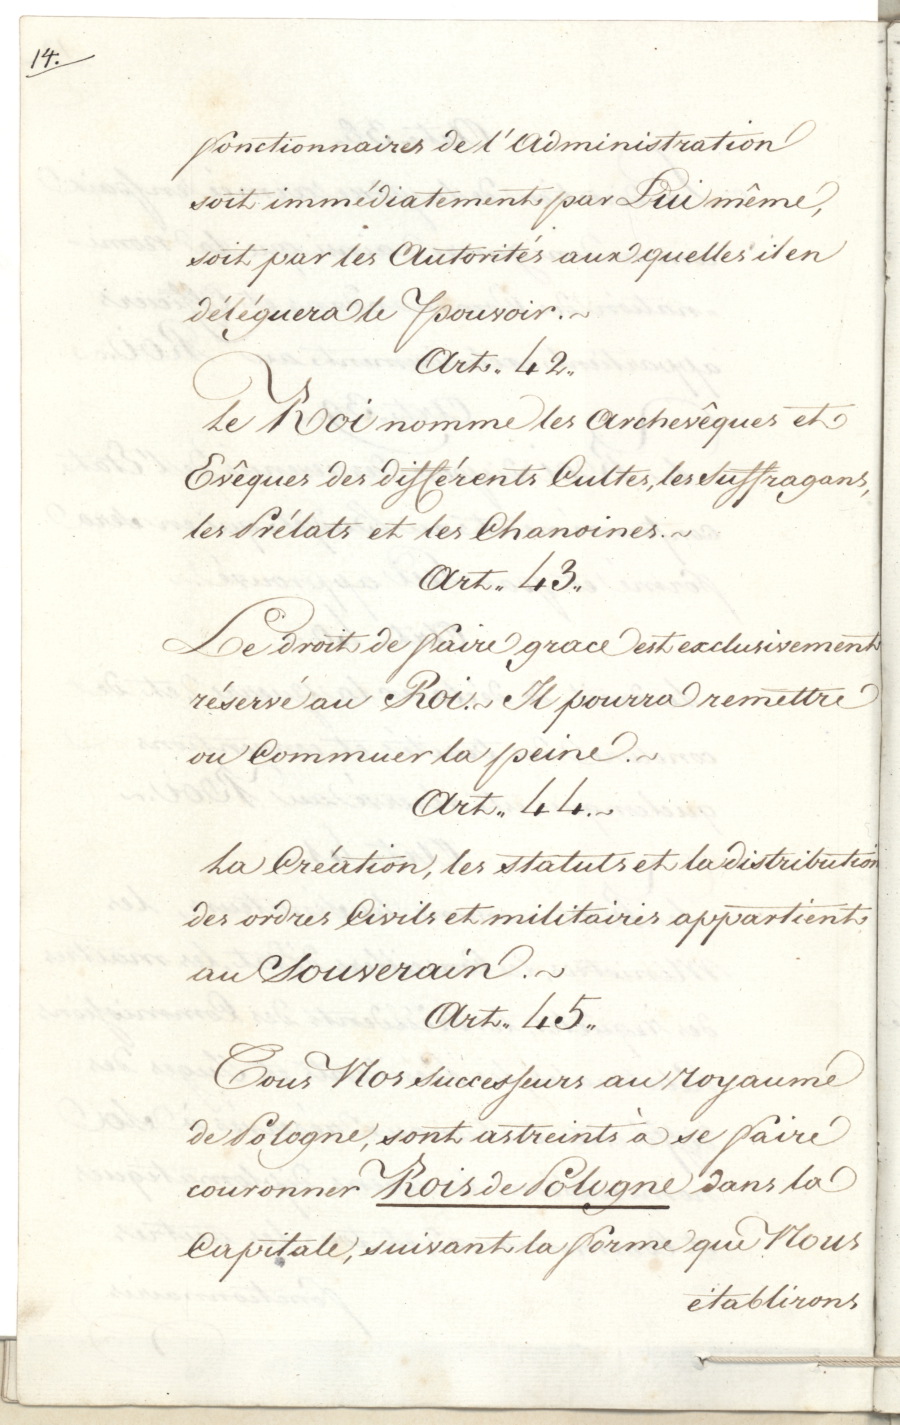 14.
fonctionnaires de l'Administration
soit immédiatement par Lui même,
soit par les Autorités aux quelles il en
déléguera le Pouvoir.~
Art. 42.
Le Roi nomme les Archevêques et
Evêques des différents Cultes, les Suffragans,
les Prélats et les Chanoines.~
Art. 43.
Le droit de faire grace est exclusivement
réservé au Roi.~ Il pourra remettre
ou Commuer la peine.~
Art. 44.~
La Création, les statuts et la distribution
des ordres Civils et militaires appartient
au Souverain.~
Art. 45.
Tous Nos successeurs au royaume
de Pologne, sont astreints à se faire
couronner Rois de Pologne dans la
Capitale, suivant la forme que Nous
établirons